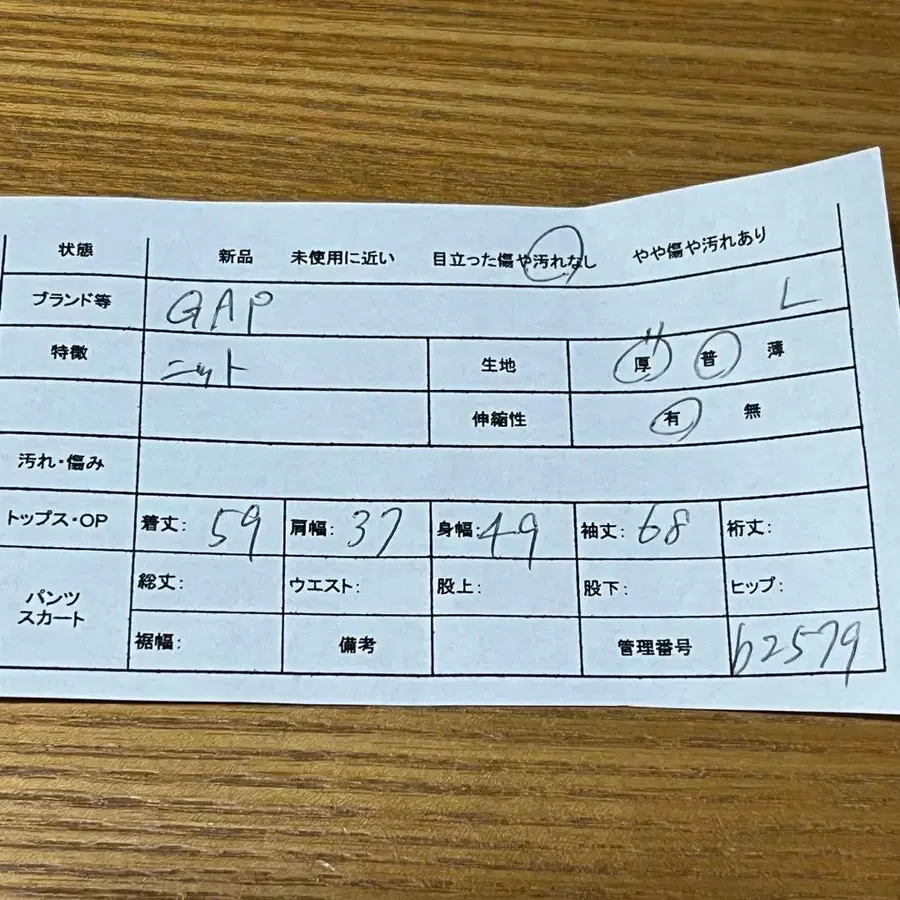 状態 新品 未使用に近い 目立った傷や汚れなし やや傷や汚れあり
ブランド等 GAP L
特徴 ニット 生地 厚 普 薄
伸縮性 有 無
汚れ・傷み
トップス・OP 着丈: 59 肩幅: 37 身幅: 49 袖丈: 68 裄丈:
パンツ スカート 総丈: ウエスト: 股上: 股下: ヒップ:
裾幅: 備考 管理番号 b2579